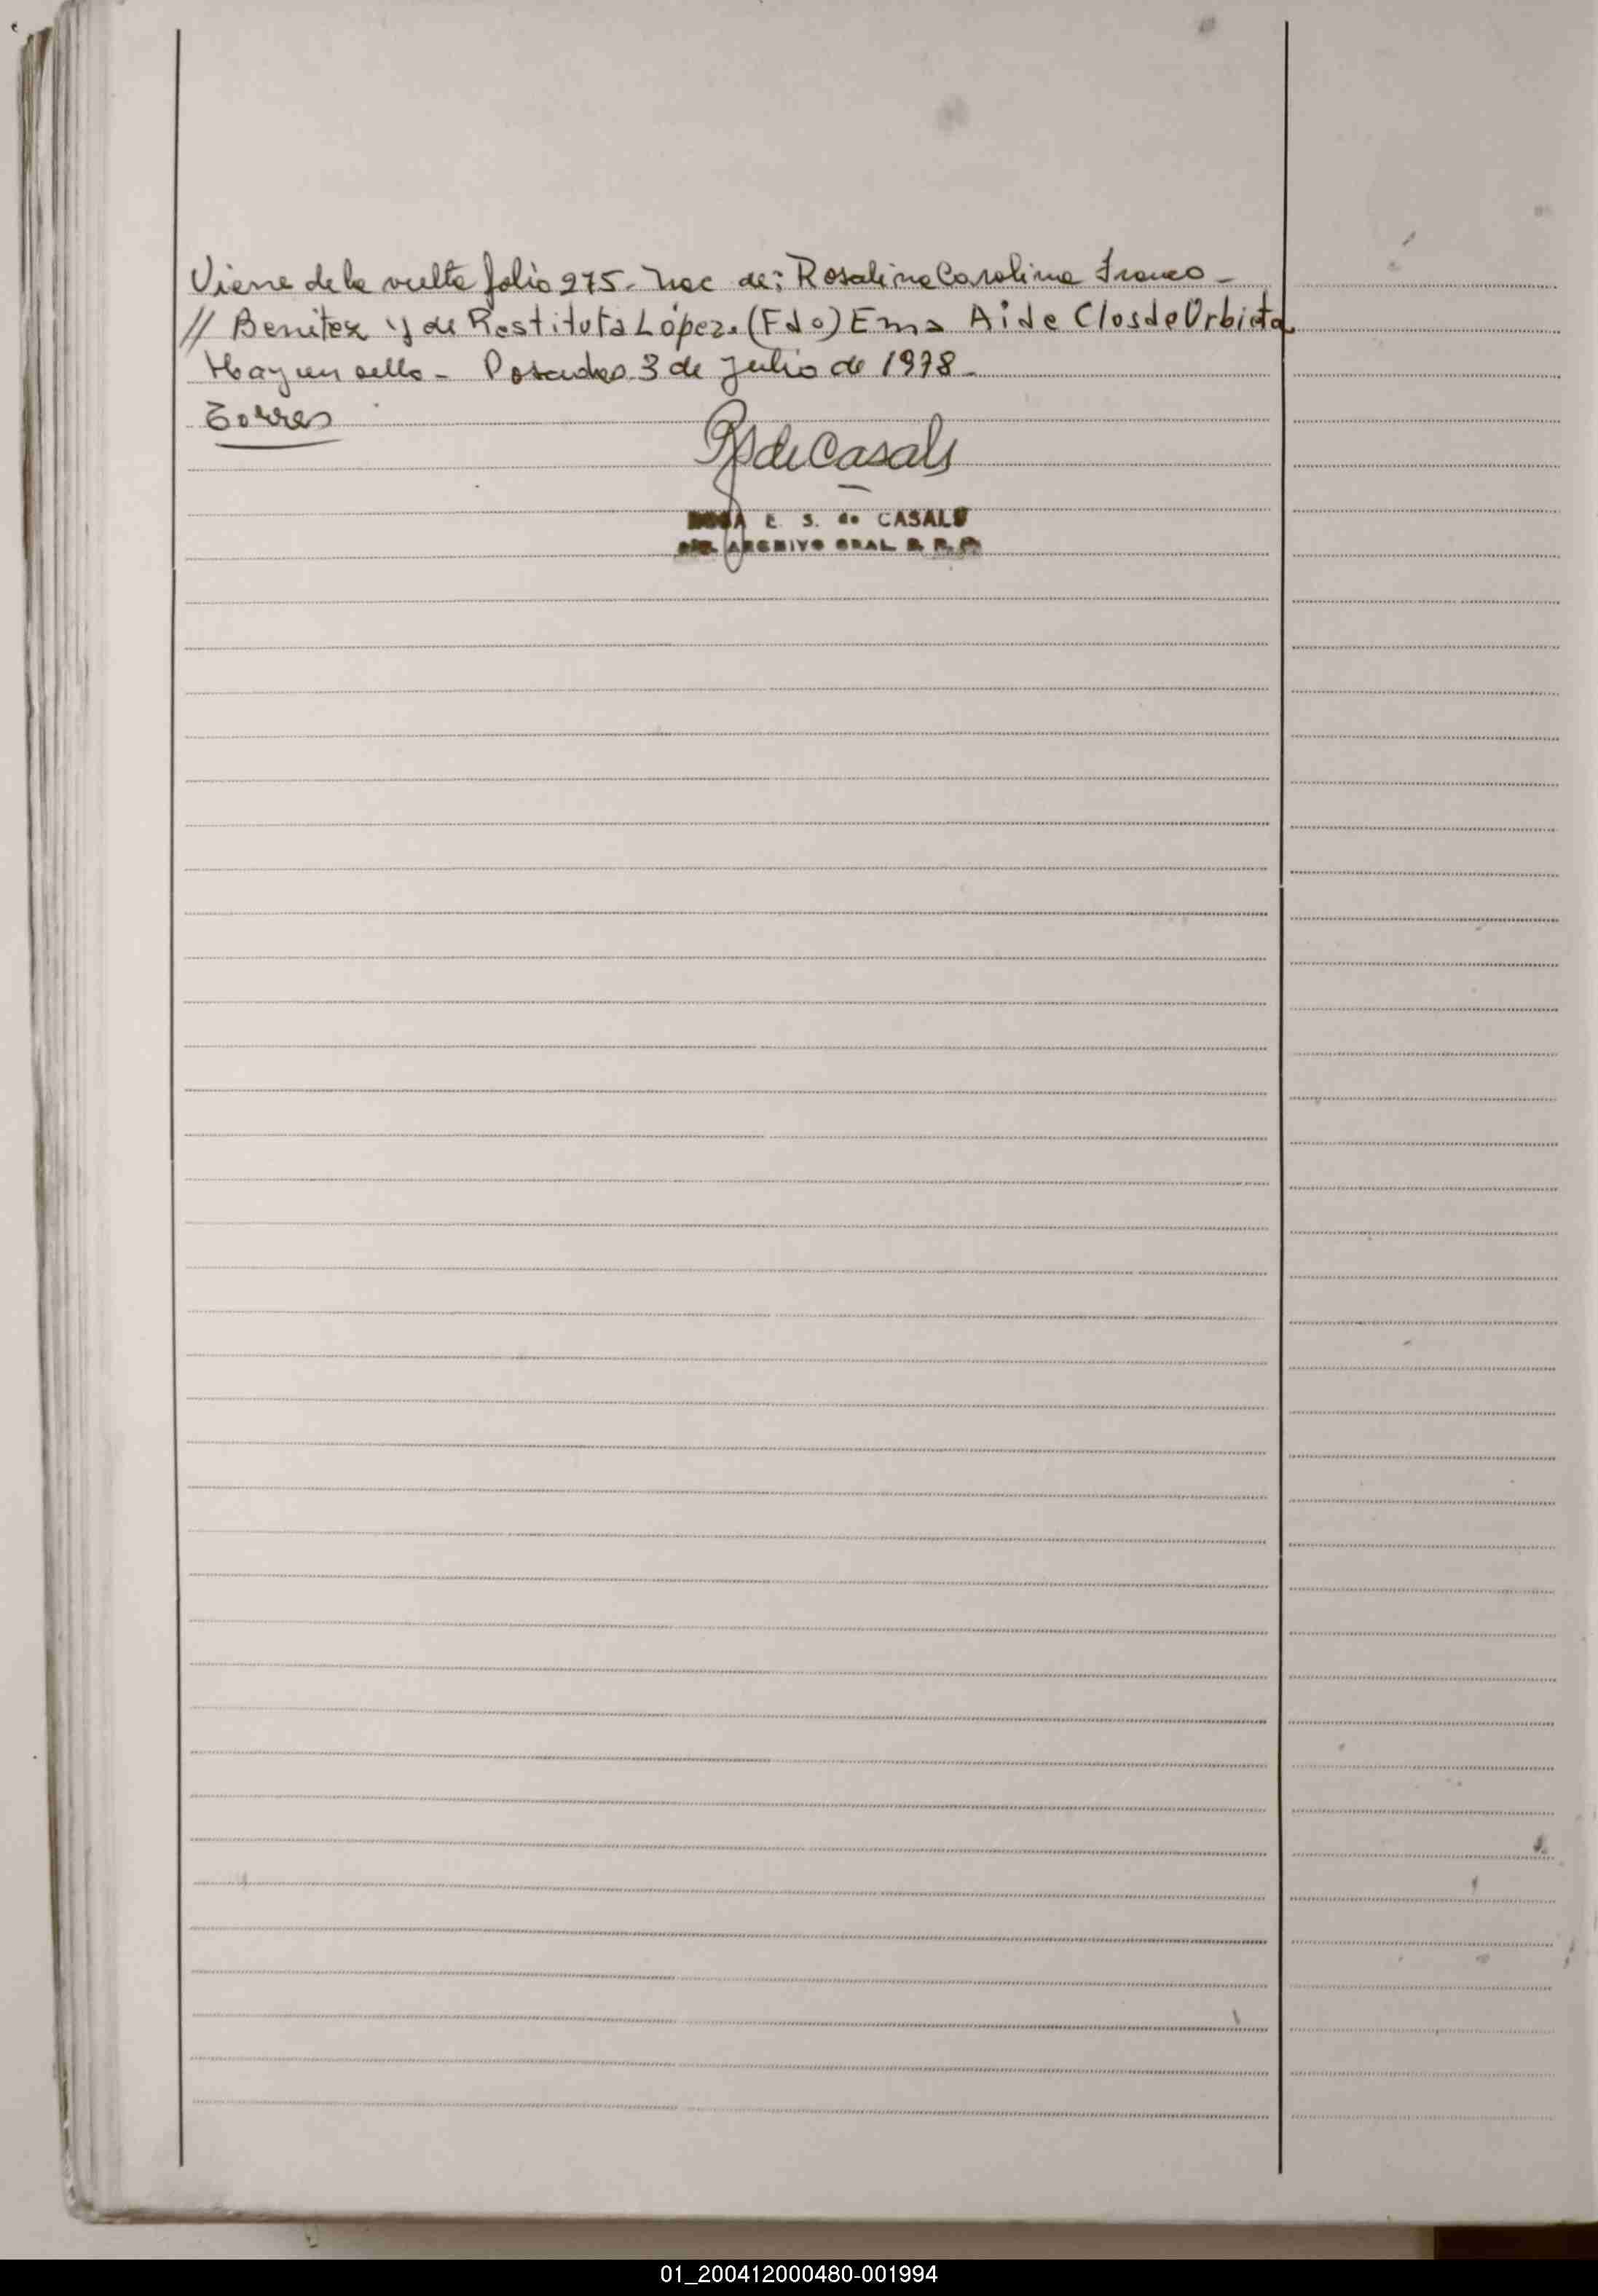 Viene de la vuelta folio 275. Nac de: Rosalina Carolina Franco -
// Benitez y de Restituta López. (Fdo) Ema Aide Clos de Urbieta
Hay un sello - Posadas 3 de Julio de 1978 -
Torres
de Casals
E. S. de CASALS
ARCHIVO GRAL
01_200412000480-001994